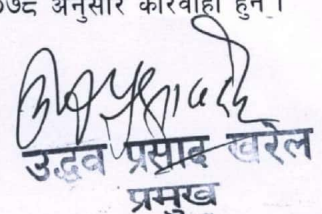 ०७८ अनुसार कारवाही हुने ।
उद्धव प्रसाद खरेल
प्रमुख